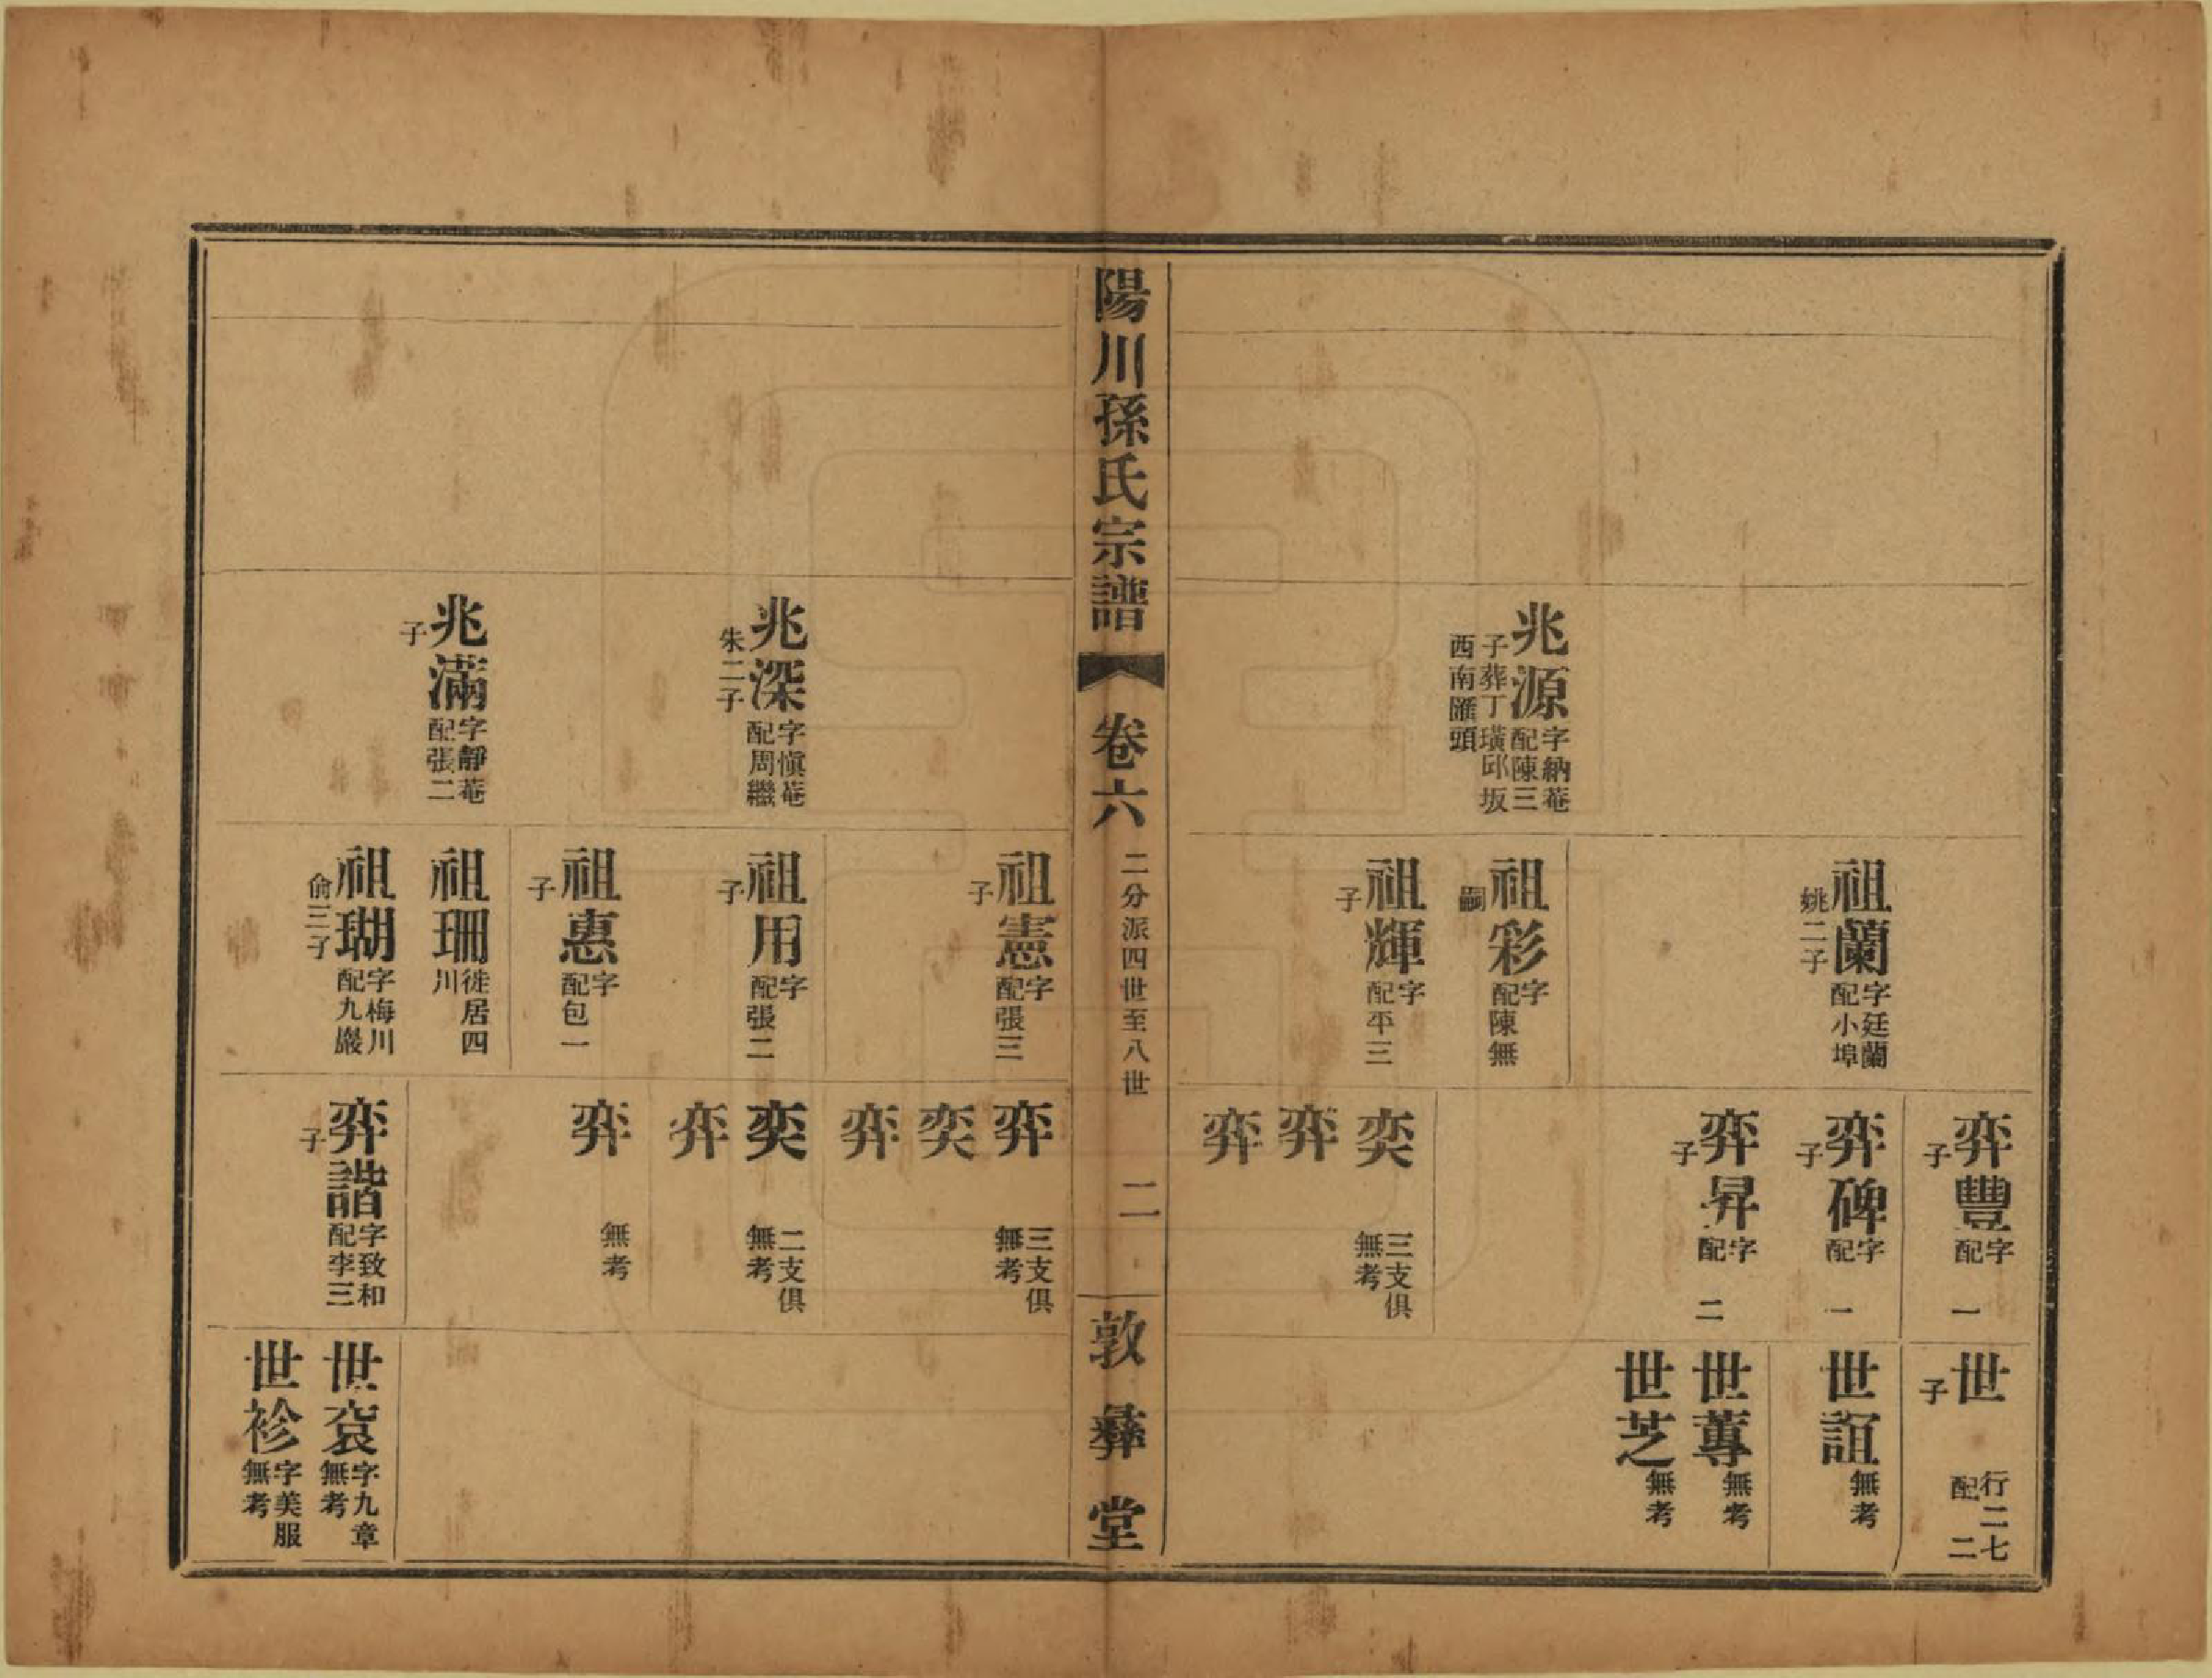 兆源字納菴配陳三子葬丁璜邱坂西南匯頭
祖蘭字廷蘭配小埠姚二子
祖彩字配陳無嗣
祖輝字配平三子
弈豐字配一子
弈碑字配一子
弈昇字配二子
奕
弈
弈
三支俱無考
世行二七配二子
世誼無考
世蓴無考
世芝無考
陽川孫氏宗譜
卷六
二分派四世至八世
二
敦彝堂
兆深字愼菴配周繼朱二子
兆滿字靜菴配張二子
祖憲字配張三子
祖用字配張二子
祖惠字配包一子
祖珊徙居四川
祖瑚字梅川配九巖俞三子
弈
奕
弈
三支俱無考
奕
弈
二支俱無考
弈
無考
弈諧字致和配李三子
世袞字九章無考
世袗字美服無考